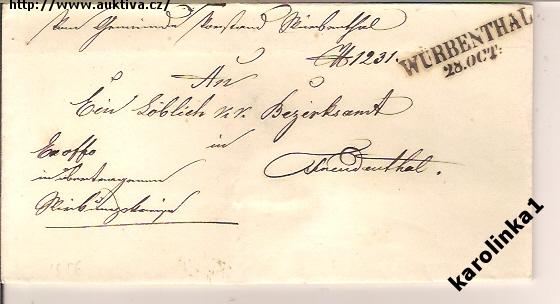 http://www.auktiva.cz/
Vom Gemeinde Vorstand Würbenthal
N 1231
WÜRBENTHAL
28. OCT.
An
Ein Löblich k.k. Bezirksamt
in
Freudenthal.
Exoffo
in übertragenen
karolinka1